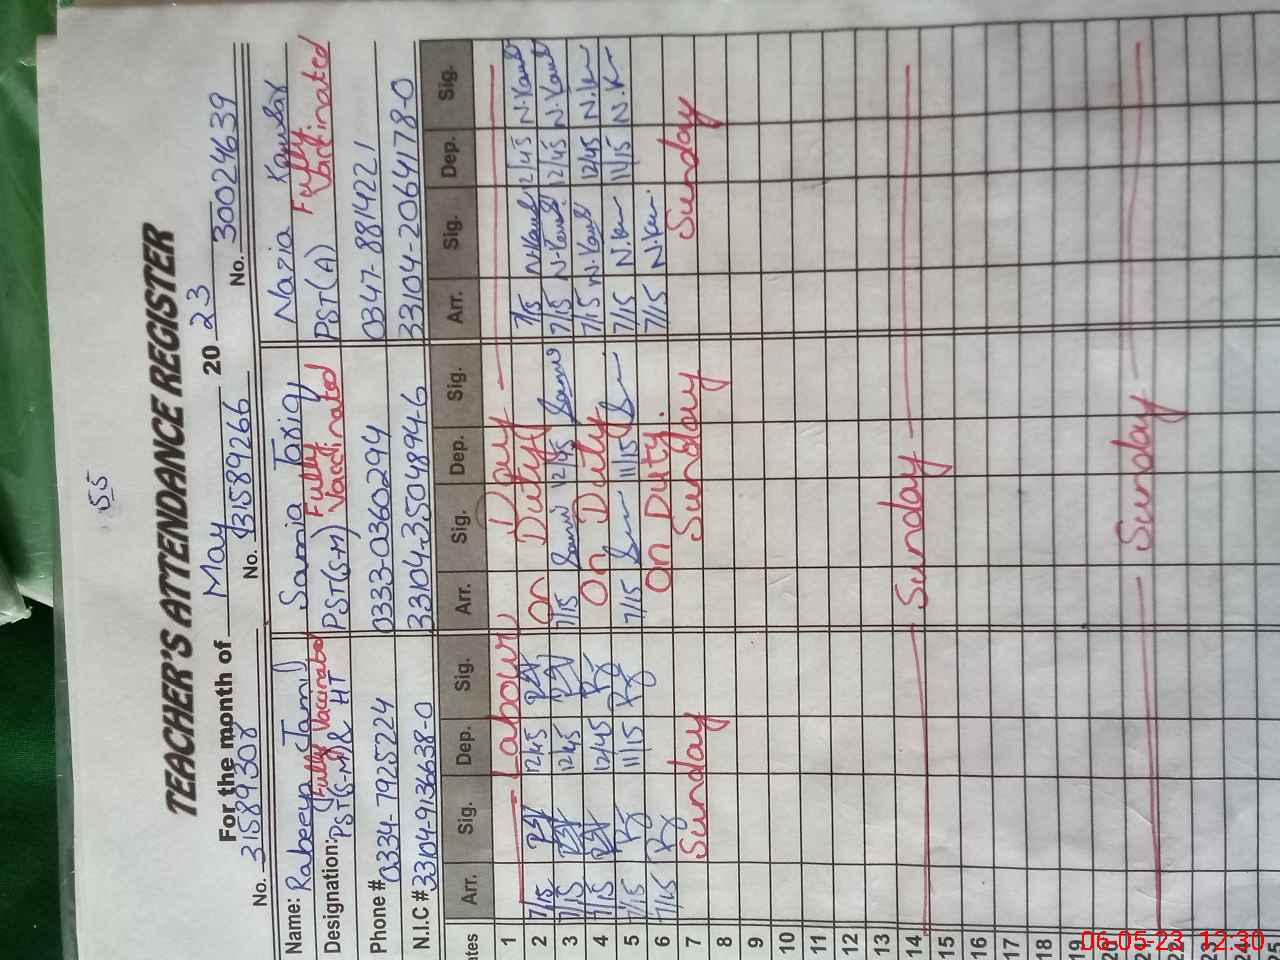 55
TEACHER'S ATTENDANCE REGISTER
For the month of May 2023
No. 31589308 No. 31589266 No. 30024639
Name: Rabeeya Jamil Samia Tariq Nazia Kausar
Fully Vaccinated Fully Vaccinated Fully Vaccinated
Designation: PST(S-M) & HT PST(S-M) PST(A)
Phone # 0334-7925224 0333-0360294 0347-8814221
N.I.C # 33104-9136638-0 33104-3504894-6 33104-2064178-0
Arr. Sig. Dep. Sig. Arr. Sig. Dep. Sig. Arr. Sig. Dep. Sig.
1 Labour Day
2 7/15 12/45 On Duty 7/15 N.Kausar 12/45 N.Kausar
3 7/15 12/45 7/15 Samia 12/45 Samia 7/15 N.Kausar 12/45 N.Kausar
4 7/15 12/45 On Duty 7/15 N.Kausar 12/45
5 7/15 11/15 7/15 11/15 7/15 11/15 N.K
6 7/15 On Duty 7/15
7 Sunday Sunday Sunday
8
9
10
11
12
13
14 Sunday
15
16
17
18
19
20
21 Sunday
22
23
24
25
06-05-23 12:30